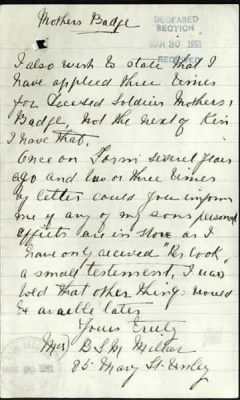 Mothers Badge
DECEASED
SECTION
MAR 30 1921
RECEIVED
I also wish to state that I
have applied three times
for Deceased Soldiers Mothers
Badge, not the next of Kin
I have that.
Once on Form several years
ago and two or three times
by letter could you inform
me if any of my sons personal
effects are in store as I
have only received
a small testament, I was
told that other things would
be available later
Yours Truly
Mrs) B S M Millar
85 Mary St